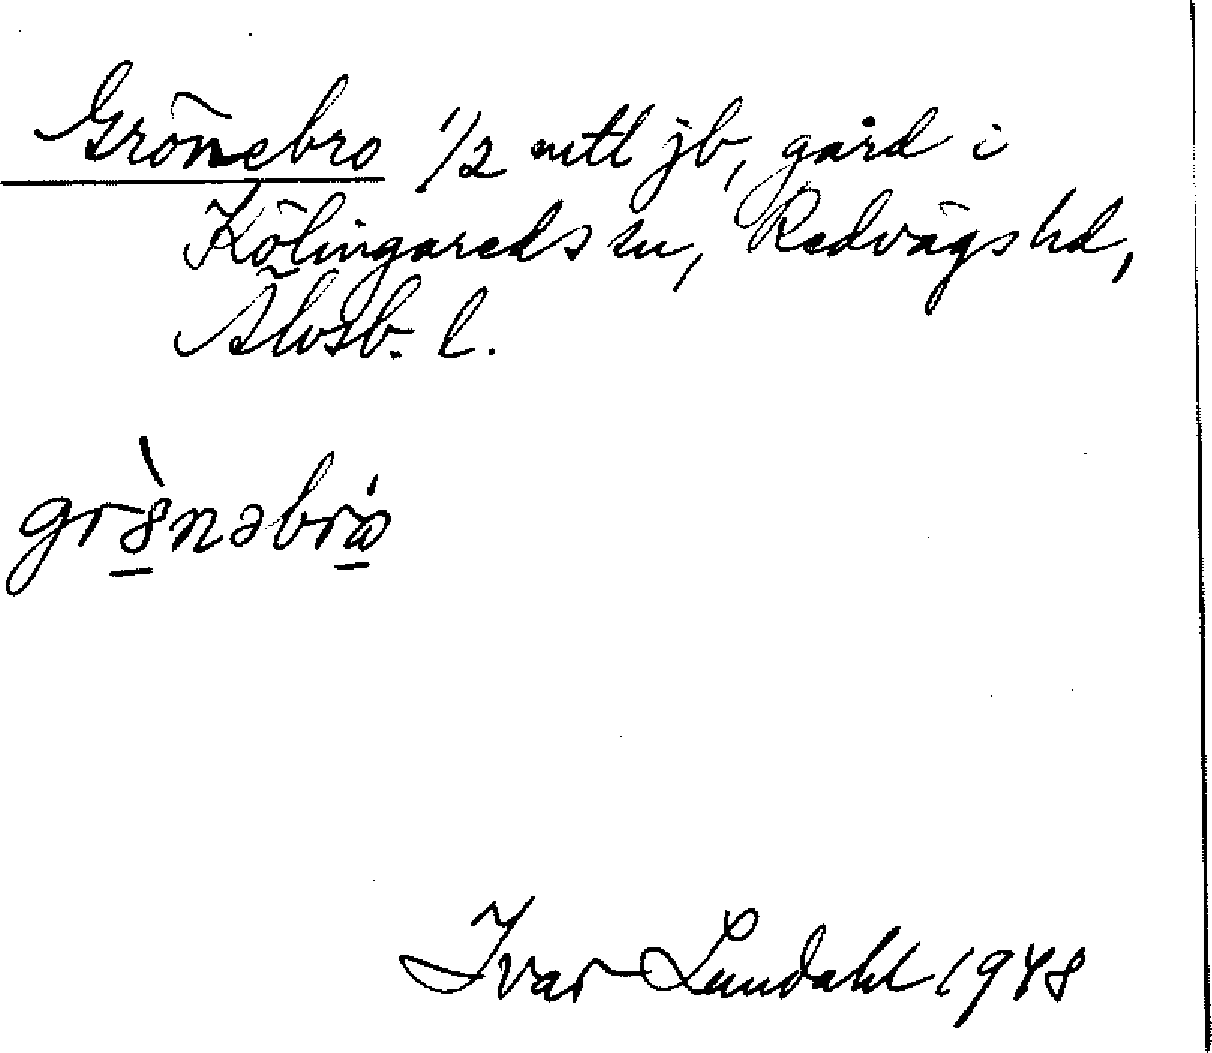 Grönebro 1/2 mtl jb, gård i
Kölingareds sn, Redvägs hd,
Älvsb. l.
grànəbrá
Ivar Lundahl 1948